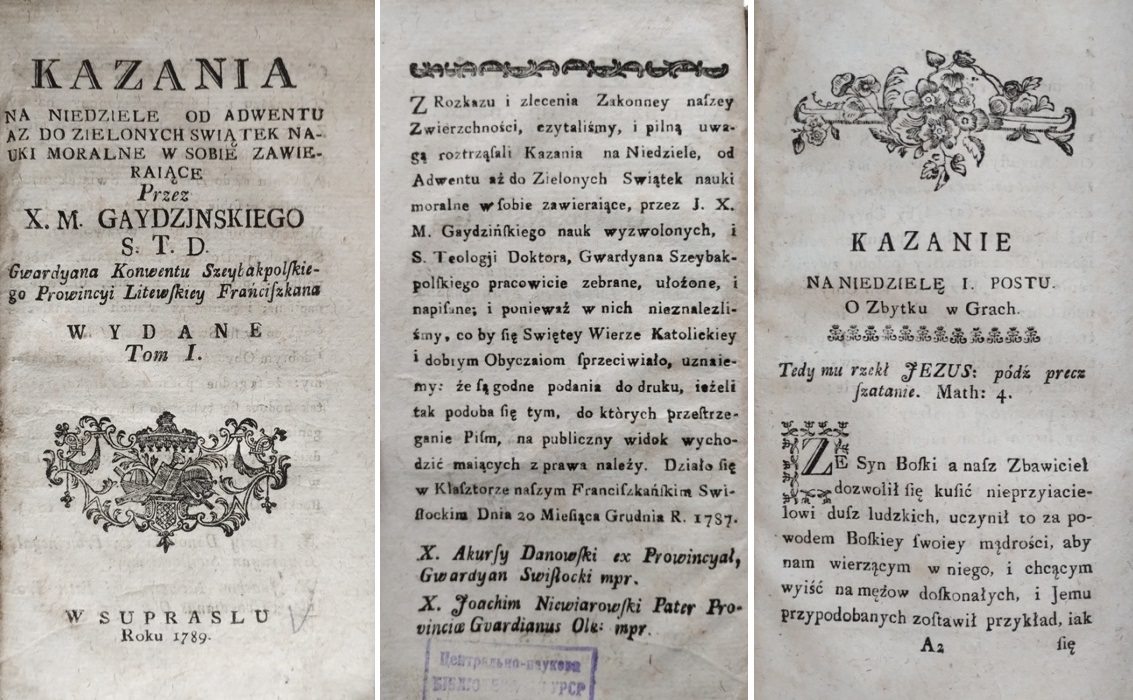 KAZANIA
NA NIEDZIELE OD ADWENTU
AZ DO ZIELONYCH SWIĄTEK NA-
UKI MORALNE W SOBIE ZAWIE-
RAIĄCE
Przez
X. M. GAYDZINSKIEGO
S. T. D.
Gwardyana Konwentu Szeybakpolſkie-
go Prowincyi Litewſkiey Franciſzkana
WYDANE
Tom I.
W SUPRASLU
Roku 1789.
Z Rozkazu i zlecenia Zakonney naſzey
Zwierzchności, czytaliśmy, i pilną uwa-
gą roztrząſali Kazania na Niedziele, od
Adwentu aż do Zielonych Swiątek nauki
moralne w ſobie zawieraiące, przez J. X.
M. Gaydzińſkiego nauk wyzwolonych, i
S. Teologji Doktora, Gwardyana Szeybak-
polſkiego pracowicie zebrane, ułożone, i
napiſane; i ponieważ w nich nieznalezli-
śmy, co by ſię Swiętey Wierze Katolickiey
i dobrym Obyczaiom ſprzeciwiało, uznaie-
my: że ſą godne podania do druku, ieżeli
tak podoba ſię tym, do których przeſtrze-
ganie Piſm, na publiczny widok wycho-
dzić maiących z prawa należy. Działo ſię
w Klaſztorze naſzym Franciſzkańſkim Swi-
ſłockim Dnia 20 Mieſiąca Grudnia R. 1787.
X. Akurſy Danowſki ex Prowincyał,
Gwardyan Swiſłocki mpr.
X. Joachim Niewiarowſki Pater Pro-
vinciæ Gvardianus Olk: mpr.
Центрально-наукова
БІБЛІО УРСР
KAZANIE
NA NIEDZIELĘ I. POSTU.
O Zbytku w Grach.
Tedy mu rzekł JEZUS: pódź precz
ſzatanie. Math: 4.
ZE Syn Boſki a naſz Zbawiciel
dozwolił ſię kuſić nieprzyiacie-
lowi duſz ludzkich, uczynił to za po-
wodem Boſkiey ſwoiey mądrości, aby
nam wierzącym w niego, i chcącym
wyiść na mężow doſkonałych, i Jemu
przypodobanych zoſtawił przykład, iak
A2 ſię